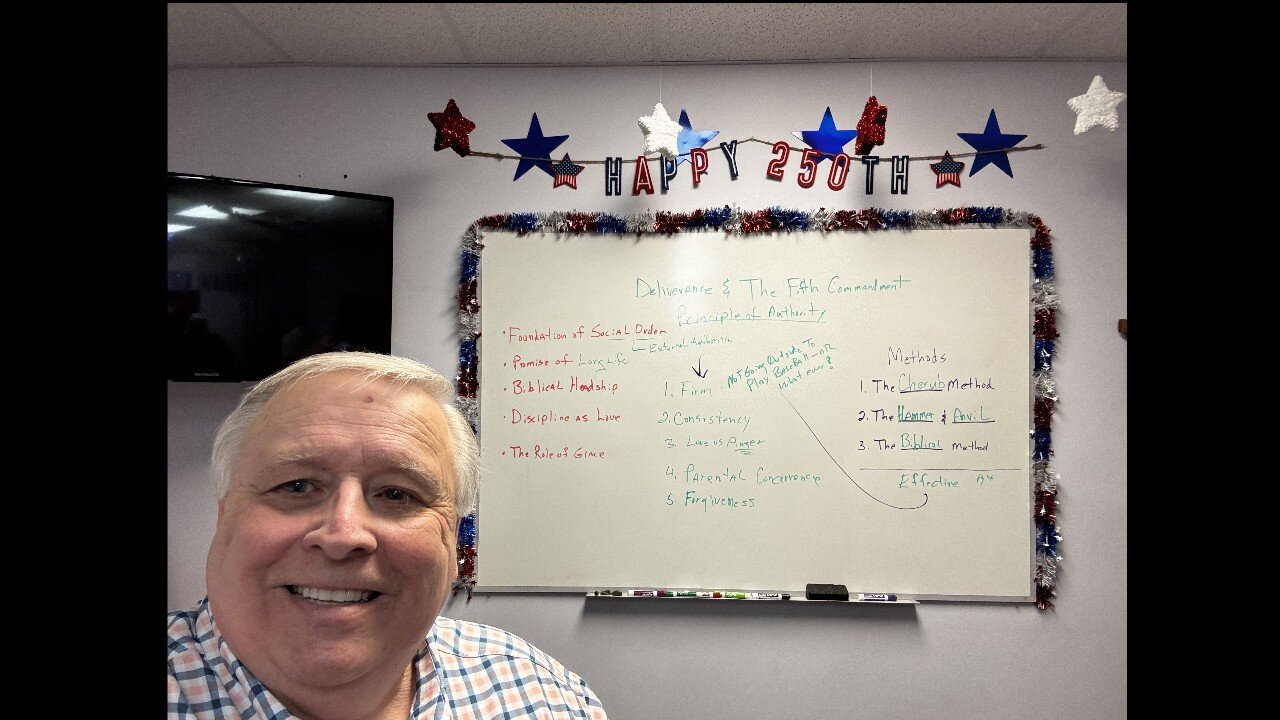 HAPPY 250TH
Deliverance & The Fifth Commandment
Principle of Authority
• Foundation of Social Order
• Promise of Long Life
• Biblical Headship
• Discipline as Love
• The Role of Grace
External
1. Firm
2. Consistency
3. Love vs Anger
4. Parental Concurrency
5. Forgiveness
Not Going Outside To
Play Baseball - OR
What ever?
Methods
1. The Cherub Method
2. The Hammer & Anvil
3. The Biblical method
Effective